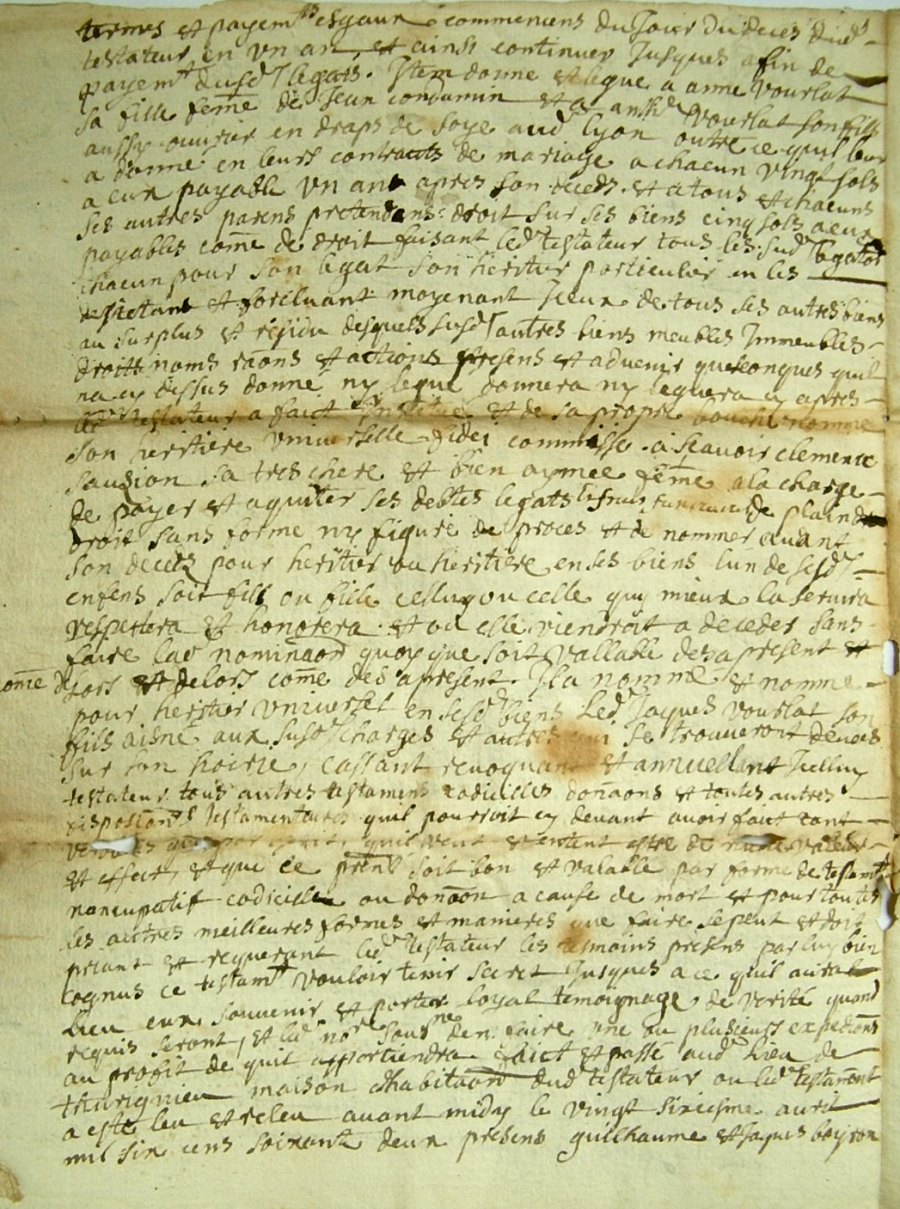 termes et payemts esgaux commencens du Jour du deces dud
testateur en un an, et ainsi continuer Jusques a fin de
payemt dusd legats. Item donne et legue a anne Vourlat
sa fille feme de Jean condamin et a anthe Vourlat son fils
aussy ouvrier en draps de soye aud lyon outre ce quil leur
a donné en leurs contraicts de mariage a chacun vingt sols
a eux payable un an apres son deceds. et a tous et chacuns
ses autres parens pretendans droit sur ses biens cinq sols a eux
payables come de droit faisant led testateur tous les susd legats
chacun pour son legat son heritier particulier en les
dejettant et forcluant moyenant Iceux de tous ses autres biens
au surplus et residu desquels susd autres biens meubles Immeubles
droits noms raons et actions presens et advenir quelconques quil
na cy dessus donne ny legué donnera ny leguera cy apres
led testateur a faict Institue et de sa propre bouche nomme
son heritiere universelle fidei commisse a scavoir clemence
saudion sa tres chere et bien aymee feme a la charge
de payer et aquiter ses debtes legats de plain
droit sans forme ny figure de proces et de nommer avant
son deceds pour heritier ou heritiere en ses biens lun de sesd
enfens soit fils ou fille celluy ou celle quy mieux la servira
respectera et honorera et ou elle viendroit a deceder sans
faire lad nominaon quoy que soit vallable des a present et
come des lors et delors come des apresent. Il a nomme et nomme
pour heritier universel en sesd biens led Jaques Vourlat son
fils aisné aux susd charges et autres qui se trouveront deues
sur son hoirie, cassant revoquant et annuellant Icelluy
testateur tous autres testamens codicilles donaons et toutes autres
dispositions testamentaires quil pourroit cy devant avoir faict tant
verballes que par escrit, quil veut et entent estre de nulle valleur
et effect, et que ce prent soit bon et valable par forme de testamt
noncupatif codicille ou donaon a cause de mort et pour toutes
les autres meilleures formes et manieres que faire se peut et doit
priant et requerant led testateur les tesmoins presens par luy bien
cognus ce testamt vouloir tenir secret Jusques a ce quil aura
lieu eux souvenir et porter loyal temoignage de verité quand
requis seront, et led nore sousne den faire une ou plusieurs expedions
au profit de qui appartiendra. faict et passé aud lieu de
thurignieu maison dhabitaon dud testateur ou led testament
a esté leu et releu avant midy le vingt sixiesme avril
mil six cens soixante deux presens guilhaume et Jaques bayron